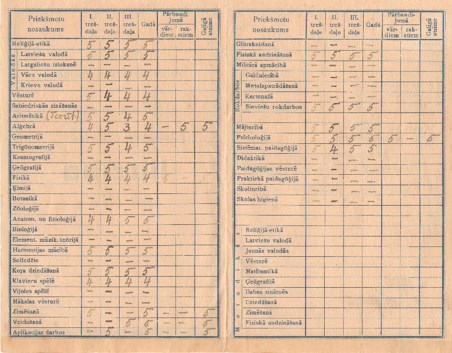 Priekšmetu nosaukums I. treš-daļa II. treš-daļa III. treš-daļa Gadā Pārbaudījumā vār-diem rak-stiem Galīgā atzīme
Reliģijā-etikā 5 5 5 5
Latviešu valodā 5 5 5 5
Latgaliešu izloksnē - - - -
Vācu valodā 4 4 4 4
Krievu valodā - - - -
Vēsturē 5 4 4 4
Sabiedriskās zinātnēs - - - -
Aritmētikā 5 5 4 5
Algebrā 4 5 3 4 - 5 5
Ģeometrijā - - - -
Trigonometrijā 5 5 4 5
Kosmografijā - - - -
Ģeogrāfijā 5 5 5 5
Fizikā 4 4 4 4
Ķīmijā - - - -
Botanikā - - - -
Zooloģijā - - - -
Anatom. un fizioloģijā 4 4 5 5
Bioloģijā - - - -
Element. mūzik. teorijā - - - -
Harmonijas mācībā 5 5 5 5
Solfedžio - - - -
Koŗa dziedāšanā 5 5 5 5
Klavieŗu spēlē 4 4 4 4
Vijoles spēlē - - - -
Mākslas vēsturē - - - -
Zīmēšanā 5 - - - - - 5
Veidošanā - - 5 5 - - 5
Aplikācijas darbos - 5 - 5 - - 5
Priekšmetu nosaukums I. treš-daļa II. treš-daļa III. treš-daļa Gadā Pārbaudījumā vār-diem rak-stiem Galīgā atzīme
Glītrakstīšanā - - - -
Fiziskā audzināšanā 5 5 5 5
Militārā apmācībā - - - -
Galdniecībā - - - -
Metalapstrādāšanā - - - -
Kartonažā - - - -
Sieviešu rokdarbos 5 5 5 5
Mājturībā 5 5 5
Psicholoģijā 5 5 5 5 - 5
Sistēmat. paidagoģijā 5 4 5 5
Didaktikā - - - -
Paidagoģijas vēsturē - - - -
Praktiskā paidagoģijā - - - -
Skolturībā - - - -
Skolas higienā - - - -
Reliģijā-etikā
Latviešu valodā
Jaunās valodās
Vēsturē
Matēmatikā
Ģeogrāfijā
Dabas zinātnēs
Dziedāšanā
Zīmēšanā
Fiziskā audzināšanā